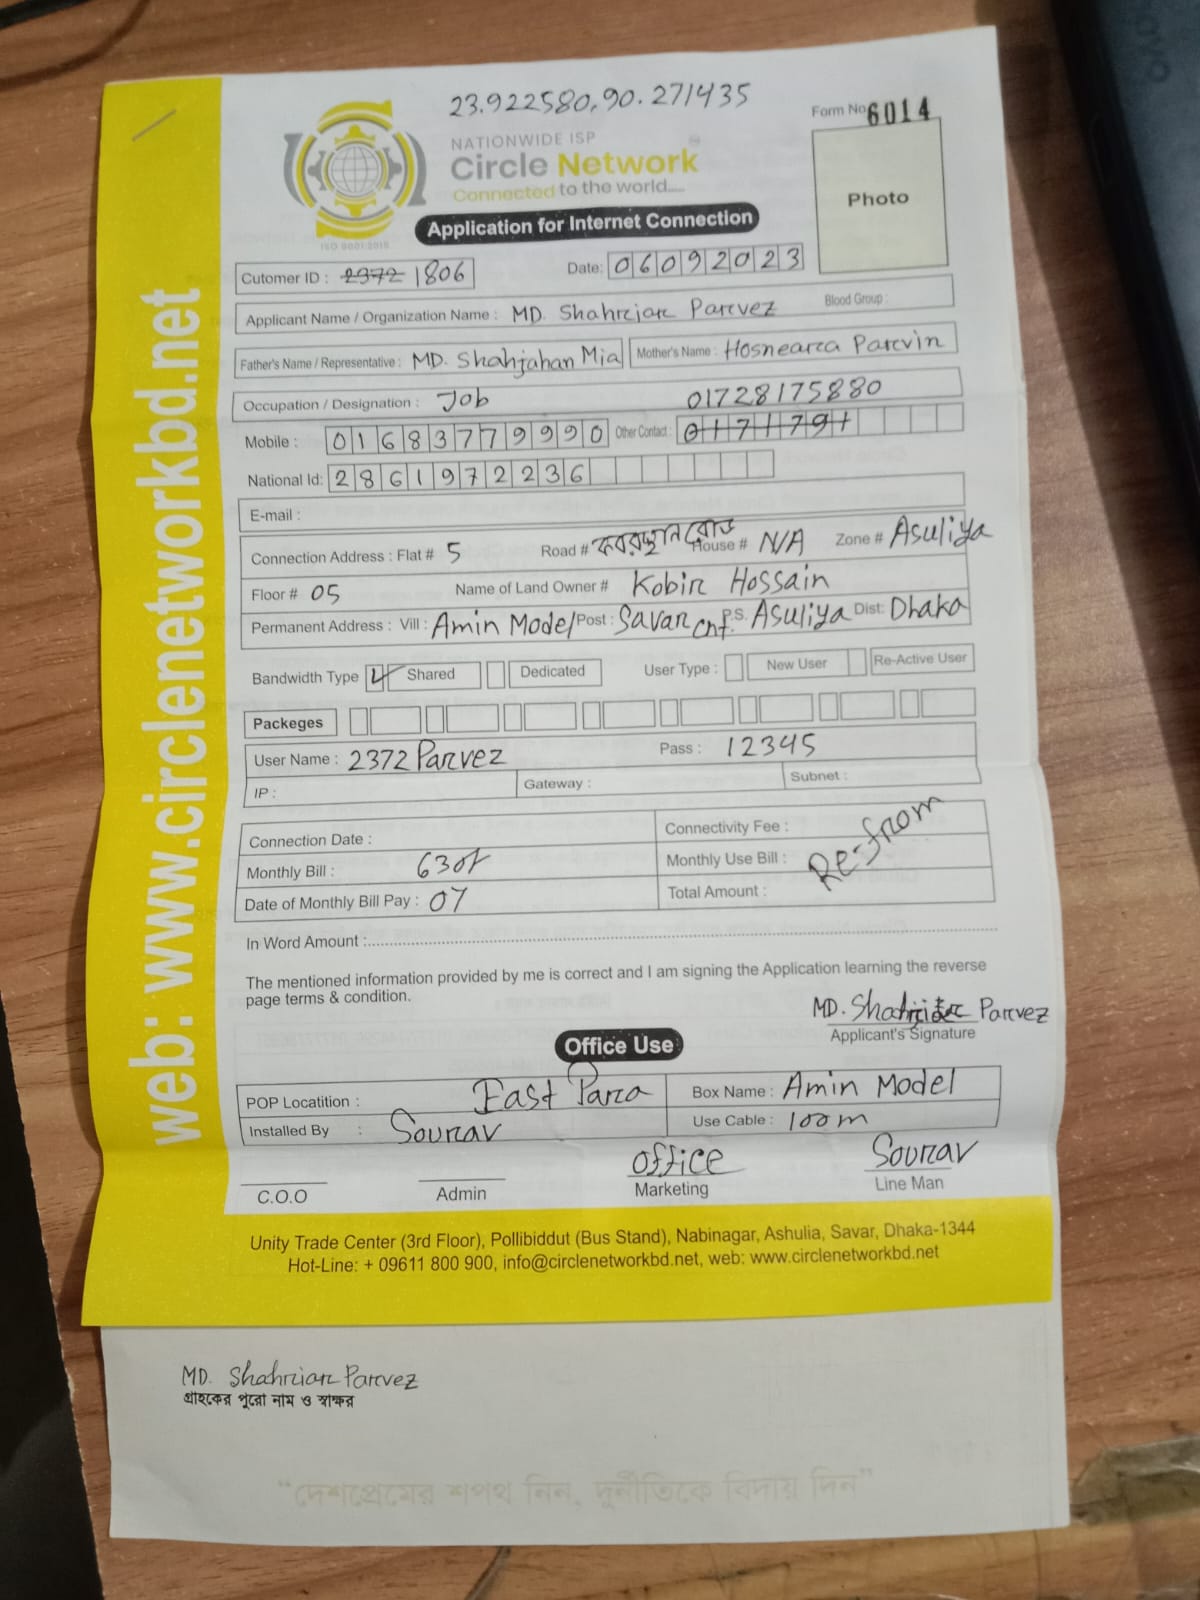 23.922580,90.271435
Form No 6014
NATIONWIDE ISP
Circle Network
Connected to the world.....
ISO 9001:2015
Photo
Application for Internet Connection
Cutomer ID : 2372 1806 Date: 06092023
Applicant Name / Organization Name : MD. Shahriar Parvez Blood Group :
Father's Name / Representative : MD. Shahjahan Mia Mother's Name : Hosneara Parvin
Occupation / Designation : Job 01728175880
Mobile : 01683779990 Other Contact : 0171791
National Id: 2861972236
E-mail :
Connection Address : Flat # 5 Road # কবরস্থান রোড House # N/A Zone # Asuliya
Floor # 05 Name of Land Owner # Kobir Hossain
Permanent Address : Vill : Amin Model Post : Savar Cnt. P.S. Asuliya Dist: Dhaka
Bandwidth Type Shared Dedicated User Type : New User Re-Active User
Packeges
User Name : 2372 Parvez Pass : 12345
IP : Gateway : Subnet :
Connection Date : Connectivity Fee :
Monthly Bill : 630/- Monthly Use Bill : Re-from
Date of Monthly Bill Pay : 07 Total Amount :
In Word Amount :
The mentioned information provided by me is correct and I am signing the Application learning the reverse
page terms & condition.
MD. Shahriar Parvez
Applicant's Signature
Office Use
POP Locatition : East Para Box Name : Amin Model
Installed By : Sourav Use Cable : 100m
Office Sourav
C.O.O Admin Marketing Line Man
Unity Trade Center (3rd Floor), Pollibiddut (Bus Stand), Nabinagar, Ashulia, Savar, Dhaka-1344
Hot-Line: + 09611 800 900, info@circlenetworkbd.net, web: www.circlenetworkbd.net
web: www.circlenetworkbd.net
MD. Shahriar Parvez
গ্রাহকের পুরো নাম ও স্বাক্ষর
"দেশপ্রেমের শপথ নিন, দুর্নীতিকে বিদায় দিন"